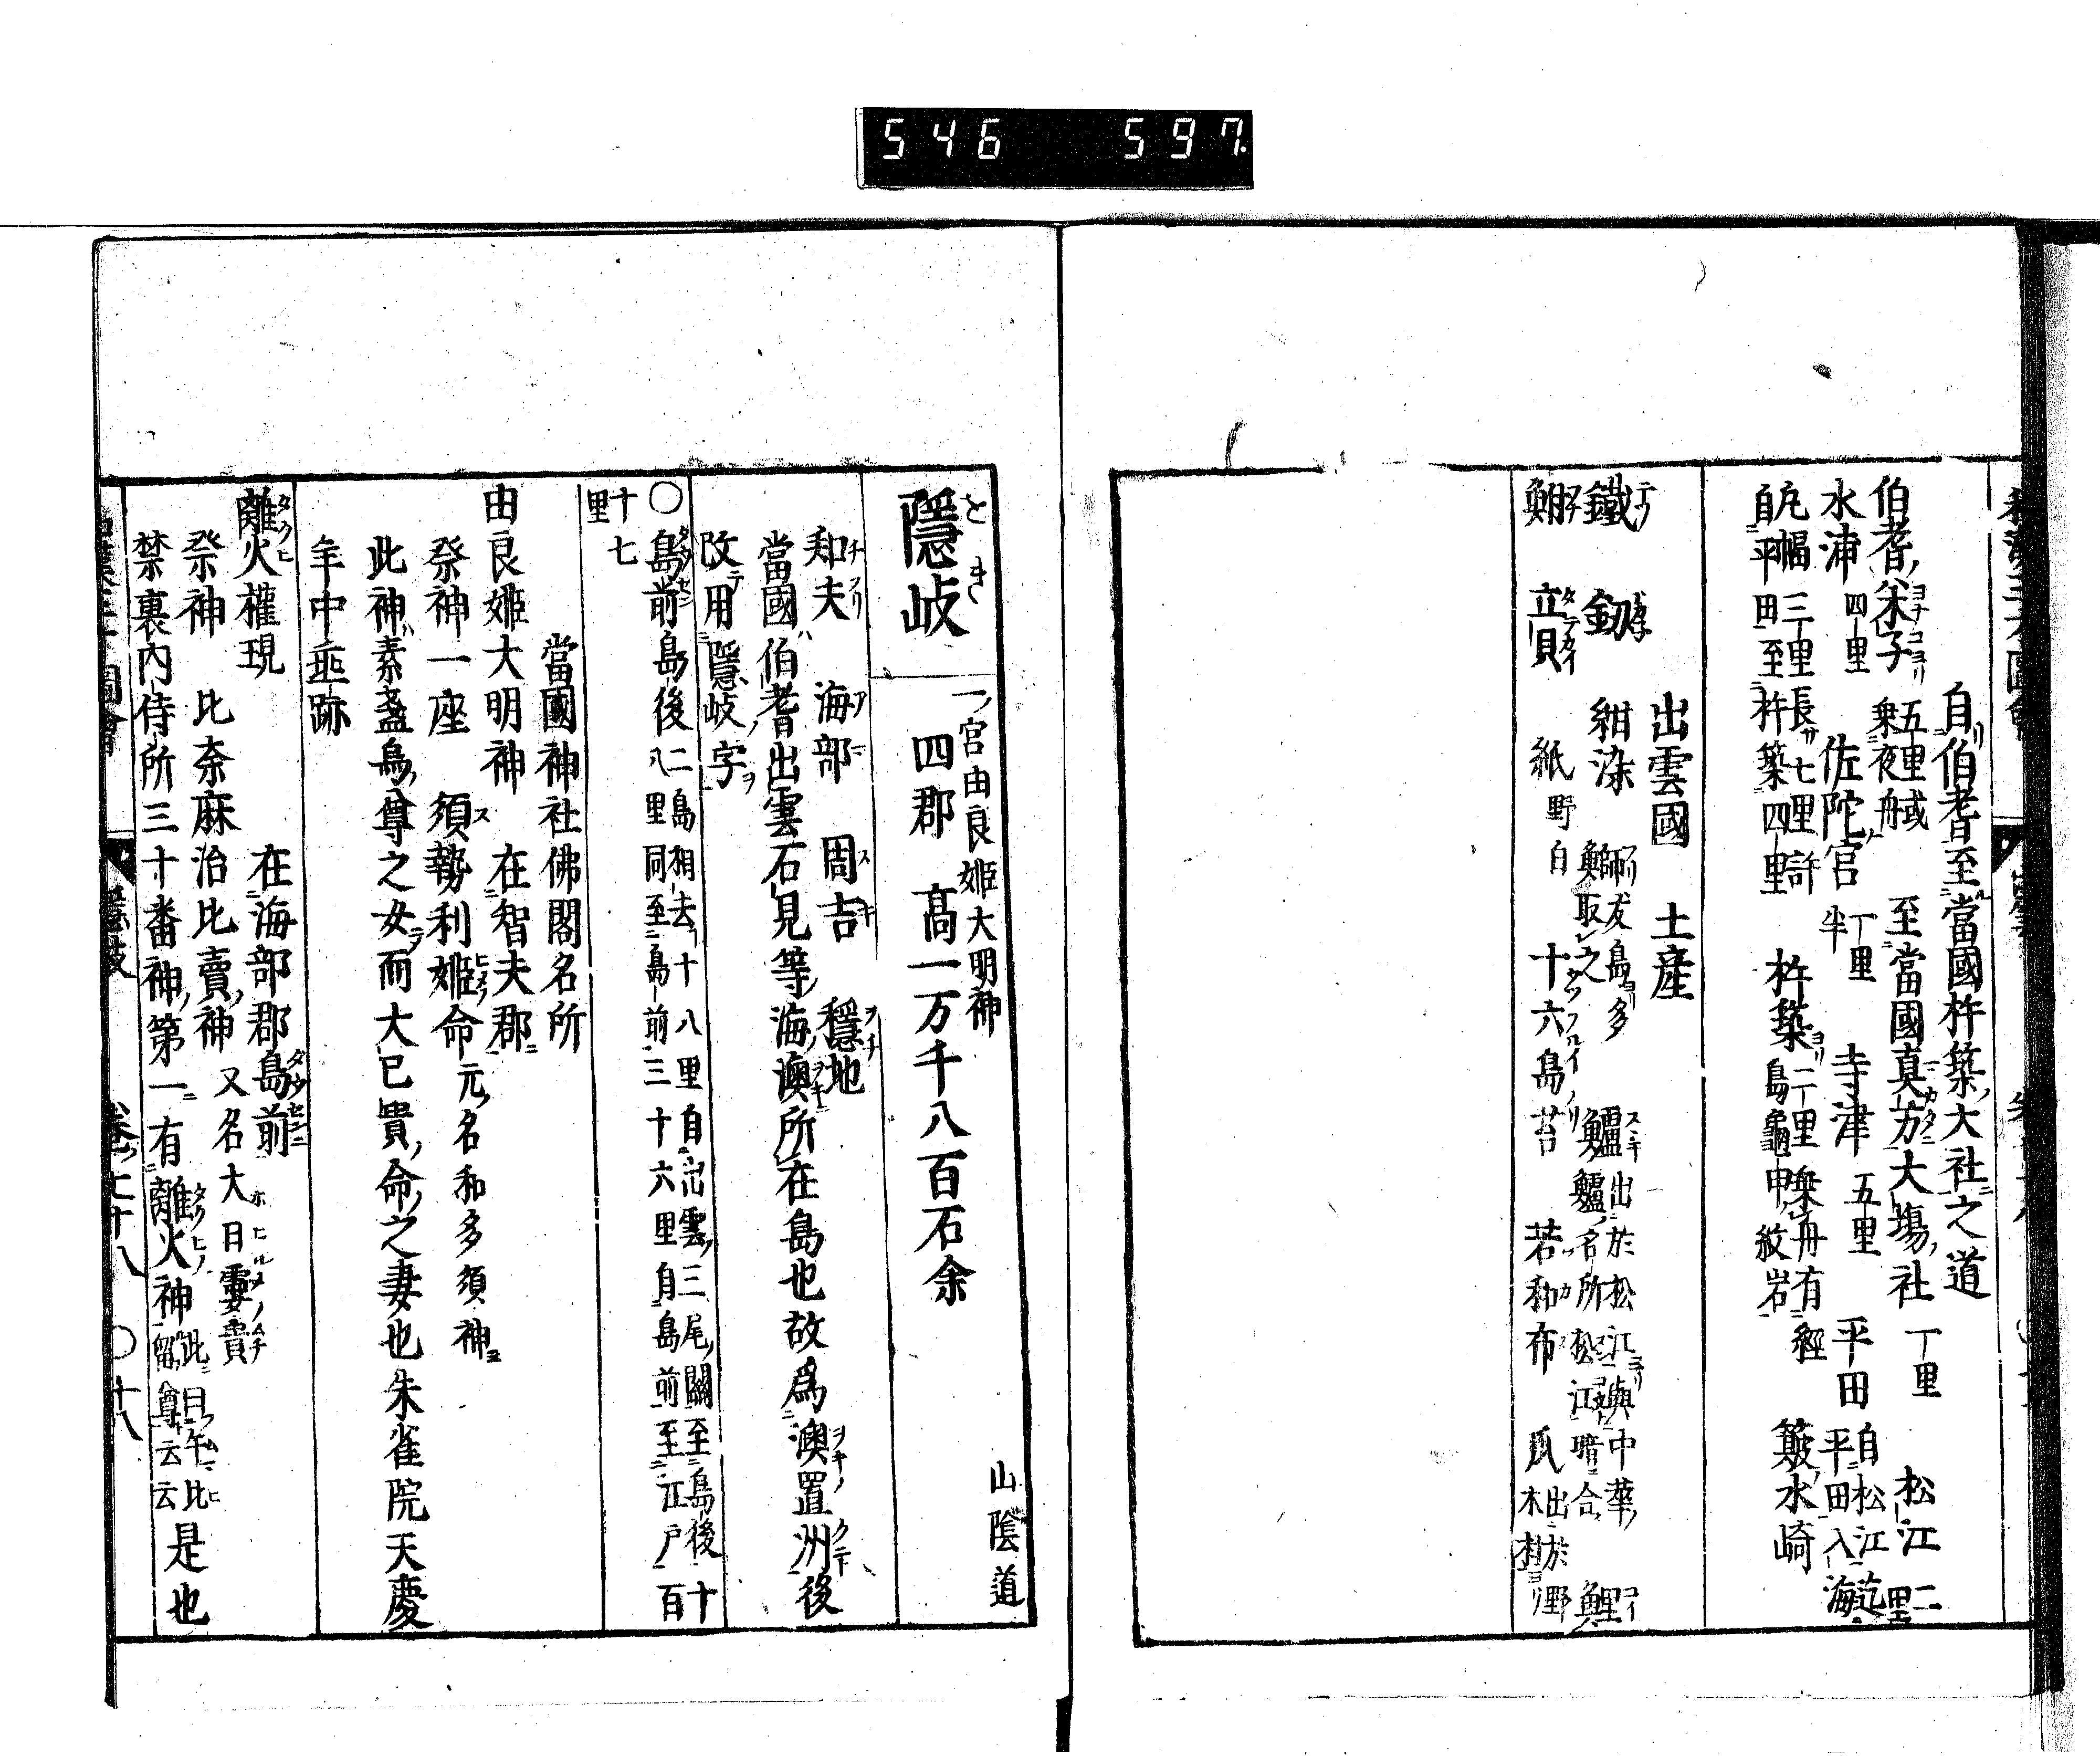 546 597.
自伯耆至當國杵築大社之道
伯耆米子 五里或乘夜舩 至當國真方大塲社 丁里 松江 二里
水浦 四里 佐陀宮 丁里半 寺津 五里 平田 自松江迄平田入海
凢幅三里長七里許 杵築 二里乗舟有經島龜甲紋岩 簸水崎
自平田至杵築四里
出雲國 土産
鐵 釼 紺染 鰤 友島多取之 鱸 出於松江與中華鱸名所松江暗合 鯉
鮒 立貝 紙 野白 十六島苔 若和布 瓜 出於野木村
山陰道
隱岐 一宮由良姫大明神
四郡 髙一万千八百石余
とき
知夫 海部 周吉 穩地
當國伯耆出雲石見等海澳所在島也故爲澳置洲後
改用隱岐字
〇島前島後 二島相去十八里自出雲三尾關至島後十八里同至島前三十六里自島前至江戸百
十七里
當國神社佛閣名所
由良姫大明神 在智夫郡
祭神一座 須勢利姫命 元名和多須神
此神素盞烏尊之女而大已貴命之妻也朱雀院天慶
年中垂跡
離火權現 在海部郡島前
祭神 比奈麻治比賣神 又名大日孁貴
禁裏内侍所三十番神第一有離火神 此曰午比留尊云云 是也
隱岐 卷七十八 〇十八